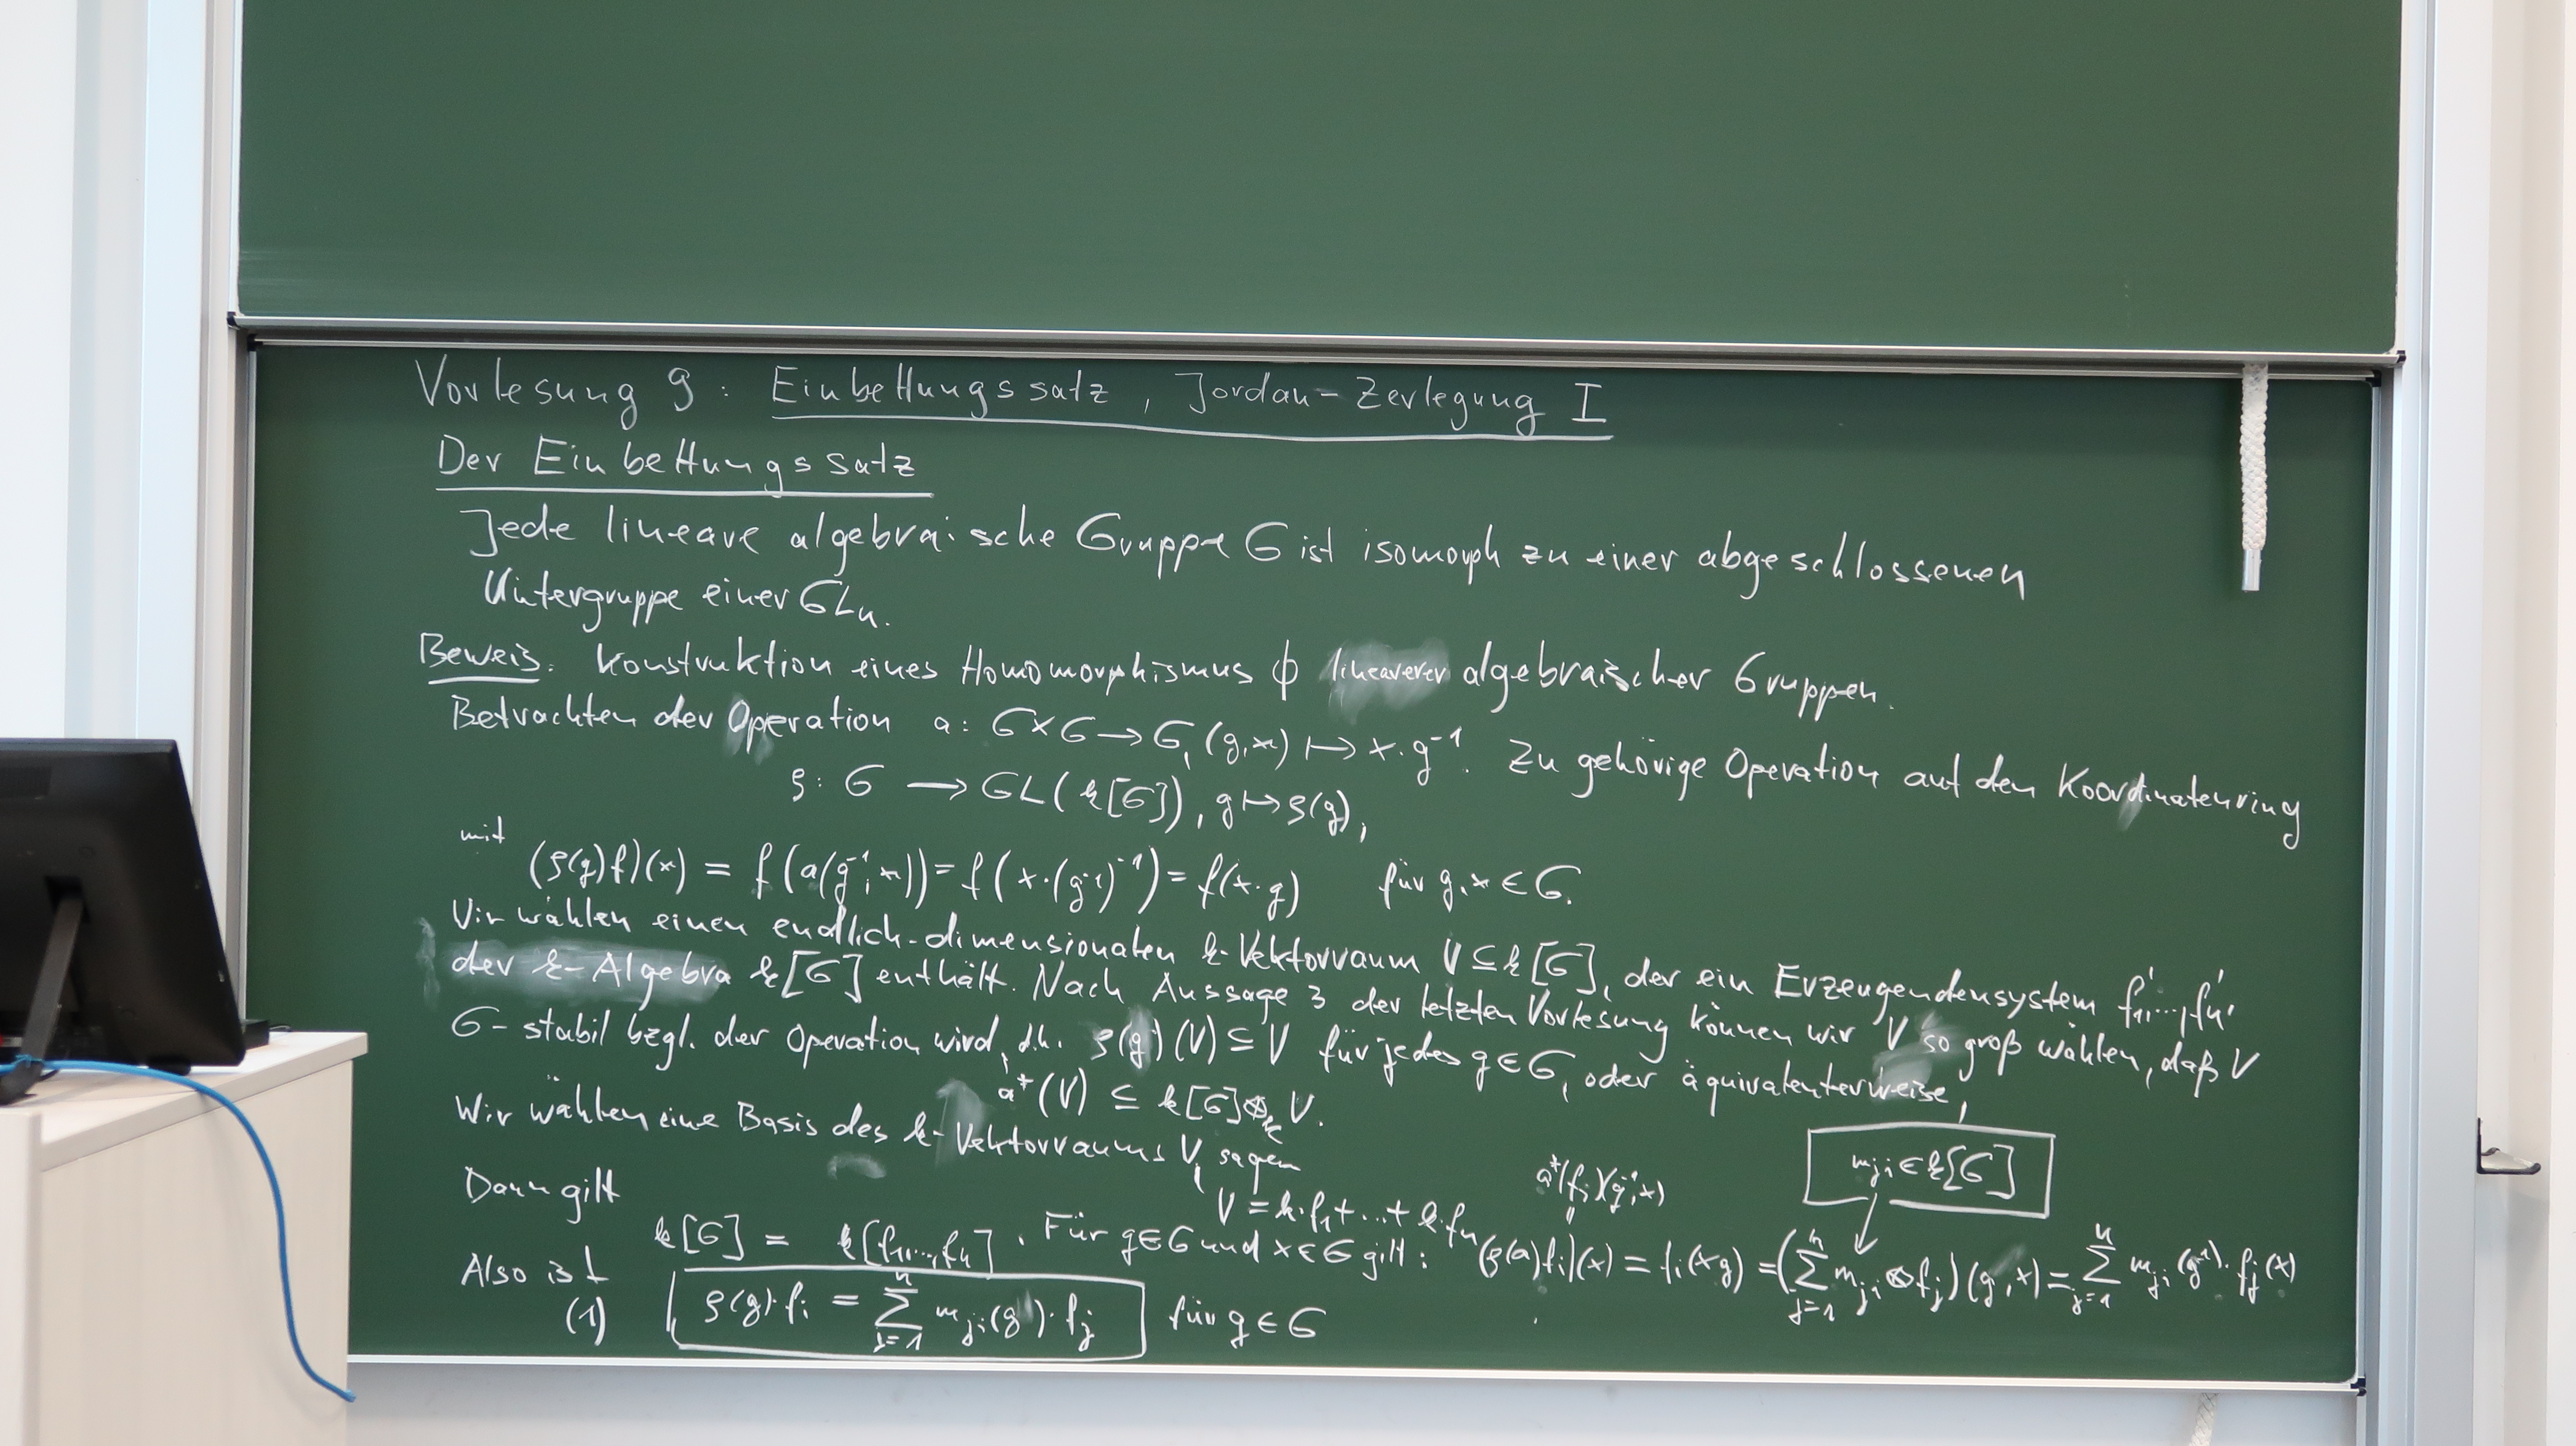 Vorlesung 9: Einbettungssatz, Jordan-Zerlegung I
Der Einbettungssatz
Jede lineare algebraische Gruppe G ist isomorph zu einer abgeschlossenen
Untergruppe einer GLn.
Beweis. Konstruktion eines Homomorphismus ϕ linearerer algebraischer Gruppen.
Betrachten der Operation a: G×G → G, (g,x) ↦ x·g⁻¹. Zugehörige Operation auf den Koordinatenring
ρ: G → GL(k[G]), g ↦ ρ(g),
mit (ρ(g)f)(x) = f(a(g⁻¹,x)) = f(x·(g⁻¹)⁻¹) = f(x·g) für g,x ∈ G.
Wir wählen einen endlich-dimensionalen k-Vektorraum V ⊆ k[G], der ein Erzeugendensystem f₁',...,fₙ'
der k-Algebra k[G] enthält. Nach Aussage 3 der letzten Vorlesung können wir V so groß wählen, daß V
G-stabil bzgl. der Operation wird, d.h. ρ(g)(V) ⊆ V für jedes g∈G, oder äquivalenterweise,
a*(V) ⊆ k[G]⊗ₖ V.
Wir wählen eine Basis des k-Vektorraums V, sagen
V = k·f₁+...+k·fₙ
Dann gilt
a*(fᵢ)(g⁻¹,x)
mⱼᵢ∈k[G]
k[G] = k[f₁,...,fₙ]. Für g∈G und x∈G gilt: (ρ(g)fᵢ)(x) = fᵢ(xg) = (∑ⱼ₌₁ⁿ mⱼᵢ⊗fⱼ)(g⁻¹,x) = ∑ⱼ₌₁ⁿ mⱼᵢ(g⁻¹)·fⱼ(x)
Also ist
(1) ρ(g)·fᵢ = ∑ⱼ₌₁ⁿ mⱼᵢ(g⁻¹)·fⱼ für g∈G